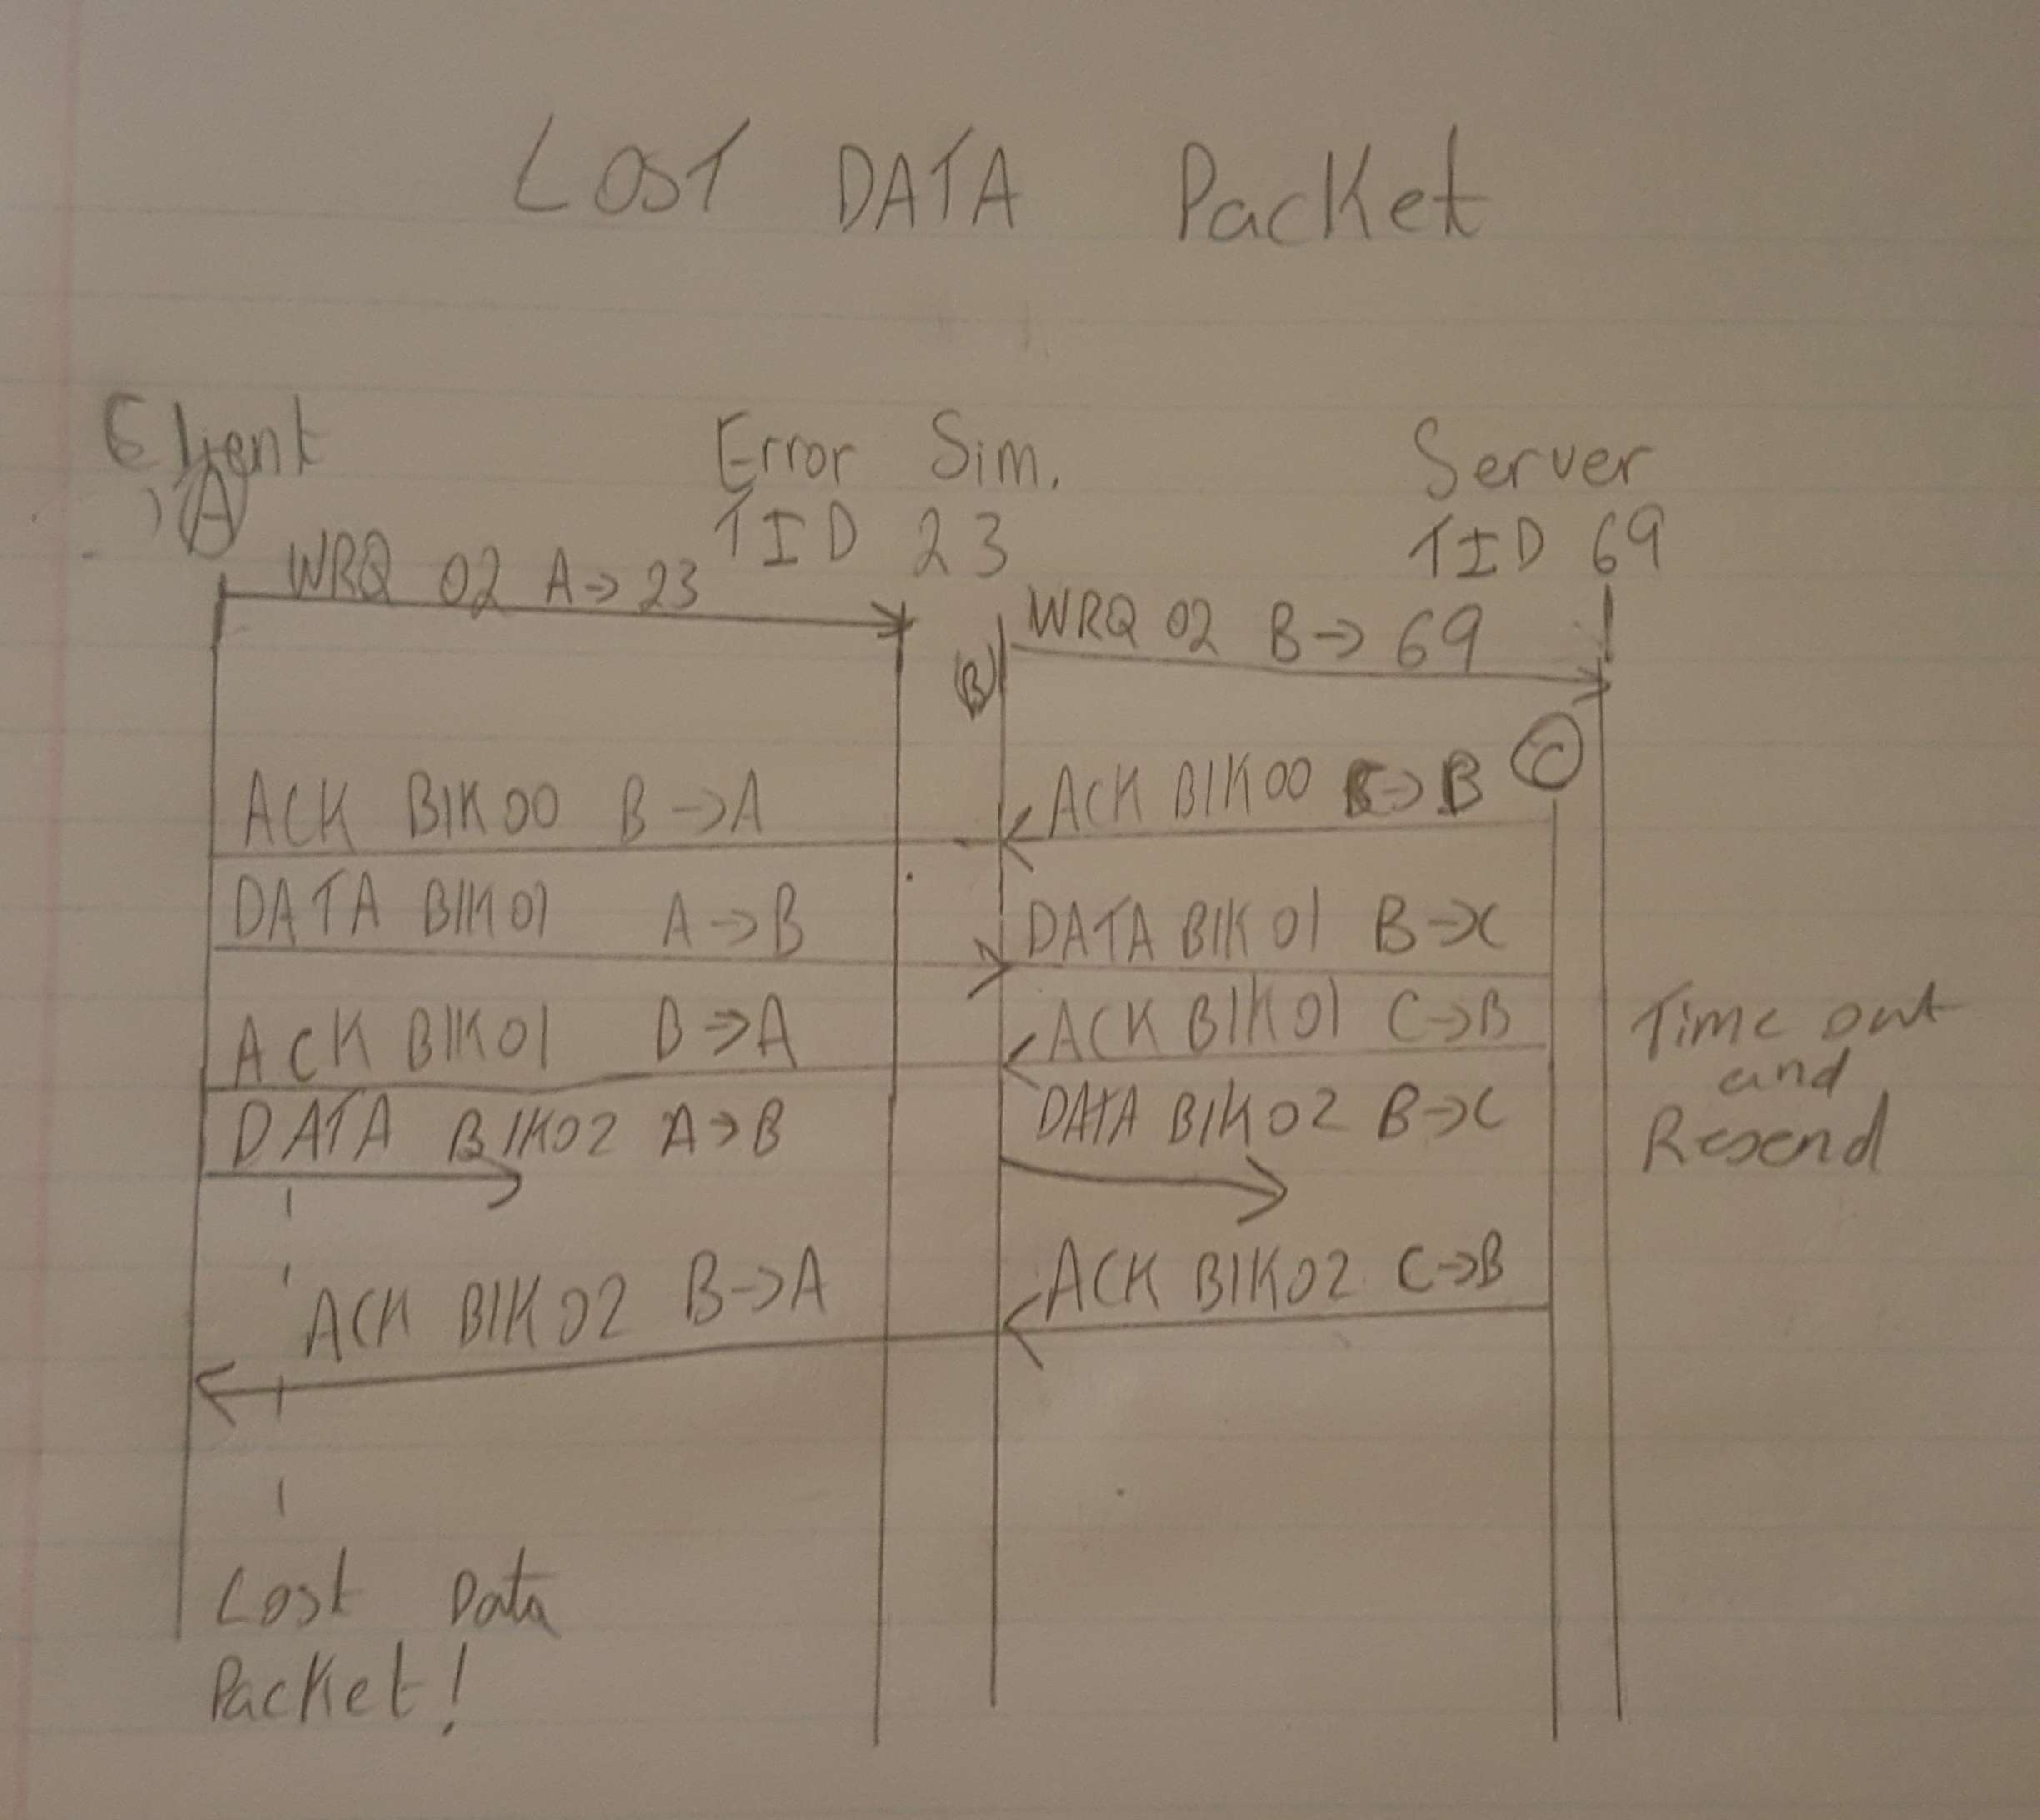 LOST DATA Packet
Client
Error Sim.
Server
A
TID 23
TID 69
WRQ 02 A→23
WRQ 02 B→69
B
C
ACK BlK00 B→A
ACK BlK00 C→B
DATA BlK01 A→B
DATA BlK01 B→C
ACK BlK01 B→A
ACK BlK01 C→B
Time out
and
Resend
DATA BlK02 A→B
DATA BlK02 B→C
ACK BlK02 B→A
ACK BlK02 C→B
Lost Data
Packet!